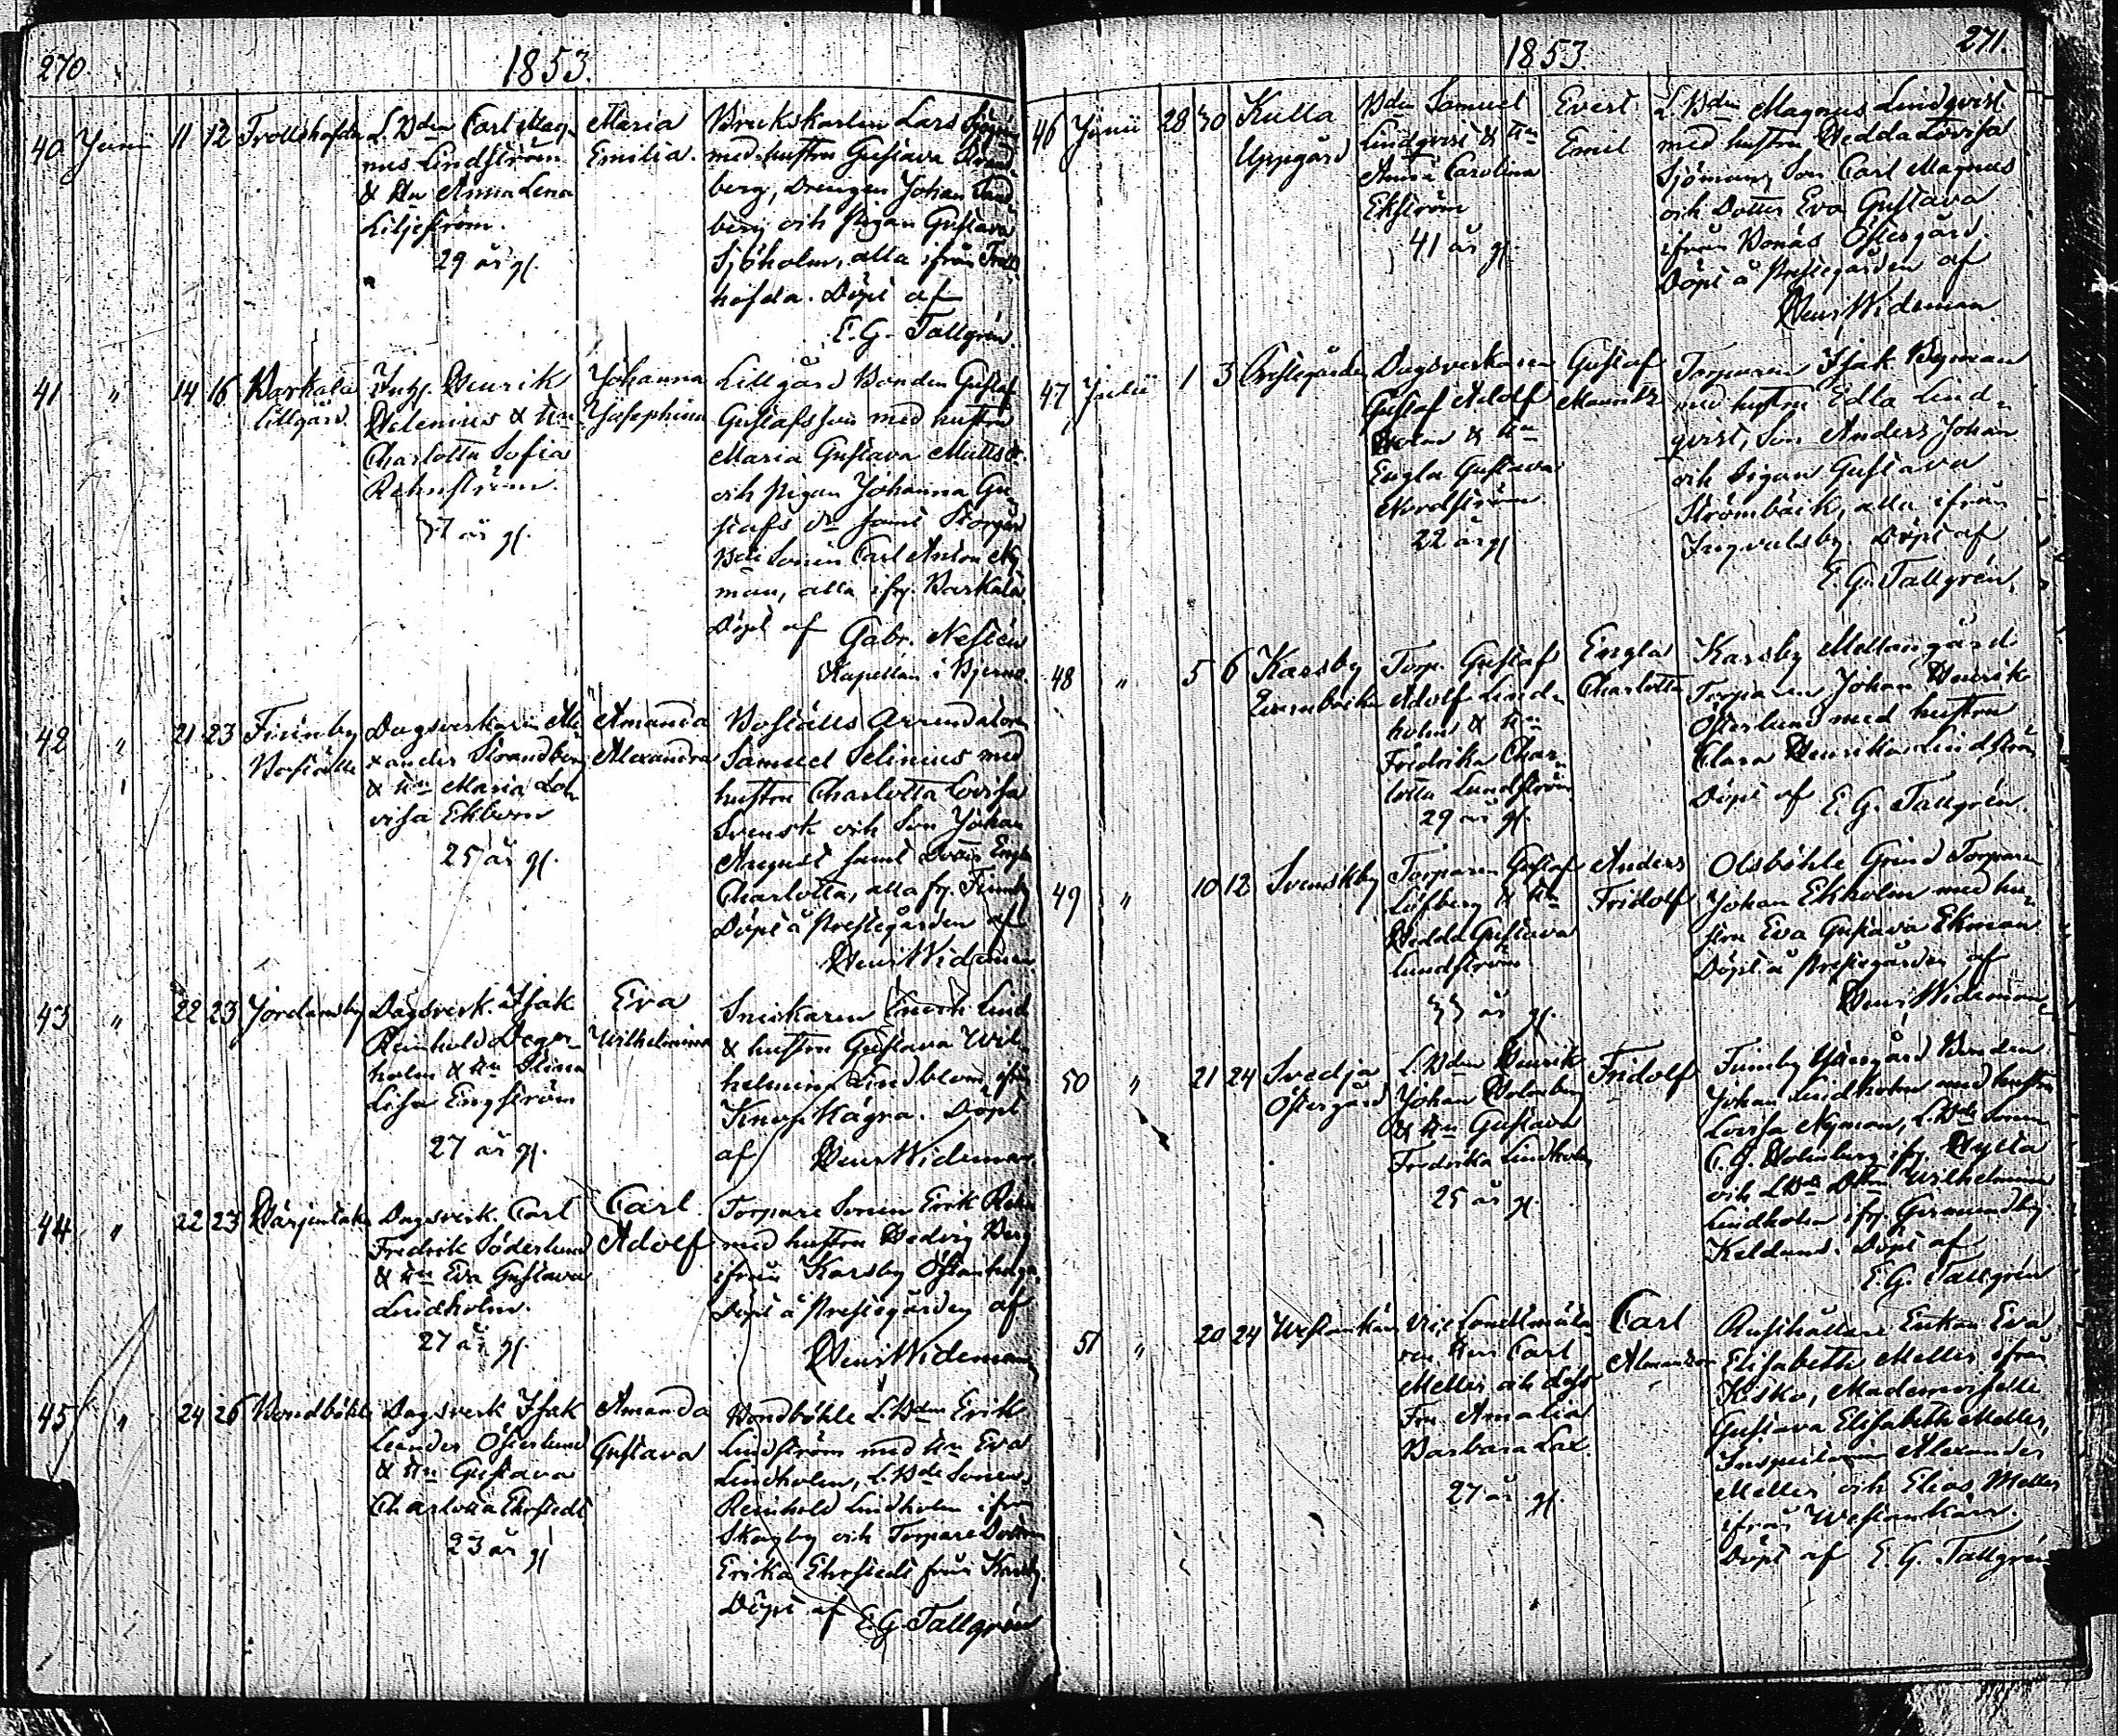 270.
1853.
40 Junii 11 12 Trollshofda L. Bden Carl Mag-
nus Lindström
& Hu Anna Lena
Liljeström.
29 år gl.
Maria
Emilia.
Brukskarlen Lars
med hustru Gustava Strand-
berg, Drengen Johan Sand-
berg och Pigan Gustava
Sjöholm, alla ifrån Troll-
hofda. Döpt af
E. G. Tallgrén.
41 " 14 16 Barkala
Lillgård
Inhj. Henrik
Helenius & Hu
Charlotta Sofia
Rehnström.
37 år gl.
Johanna
Josephina
Lillgård Bonden Gustaf
Gustafsson med hustru
Maria Gustava Mattsdr.
och Pigan Johanna Gu-
stafs dr samt Storgård
Bde Sonen Carl Anton Ny-
man, alla ifr. Barkala.
Döpt af Gabr. Neslén
Kapellan i Bjerno.
42 " 21 23 Finnby
Boställe
Dagsverkaren Ale-
xander Strandberg
& Hu Maria Lo-
visa Ekbom
25 år gl.
Amanda
Alexandra
Boställs Arrendatorn
Samuel Selinius med
hustru Charlotta Lovisa
Svensk och Son Johan
August samt Dotter Engla
Charlotta, alla fr. Finnby
Döpt å Prestegården af
Henr Wideman.
43 " 22 23 Jordansby
Dagsverk. Isak
Reinhold Deger-
holm & Hu Stina
Lisa Engström
27 år gl.
Eva
Wilhelmina
Snickaren Enoch Lind
& hustru Gustava Wil-
helmina Lindblom, ifrån
Knops Kägra. Döpt
af Henr Wideman.
44 " 22 23
Dagsverk. Carl
Fredrik Söderlund
& Hu Eva Gustava
Lindholm.
27 år gl.
Carl
Adolf
Torpare Sonen Erik
med hustru Hedvig Berg
ifrån Karsby Östanhaga.
Döpt å Prestegården af
Henr Wideman
45 " 24 26 Bondböhle
Dagsverk Isak
Leander Österlund
& Hu Gustava
Charlotta Ehrstedt
23 år gl
Amanda
Gustava
Bondböhle L. Bden Erik
Lindström med Hu Eva
Lindholm, L. Bde Sonen
Reinhold Lindholm ifrån
Skogby och Torpare Dottren
Erika Ehrstedt från Karsby.
Döpt af E. G. Tallgrén
271.
1853.
46 Junii 28 30 Kulla
Uppgård
Bden Samuel
Lindqvist & Hu
Anna Carolina
Ekström
41 år gl.
Evert
Emil
L. Bden Magnus Lindqvist
med hustru Hedda Lovisa
Sjöman, Son Carl Magnus
och Dotter Eva Gustava
ifrån Bonäs Östergård.
Döpt å Prestegården af
Henr Wideman.
47 Julii 1 3 Prestegården
Dagsverkaren
Gustaf Adolf
& Hu
Engla Gustava
Nordström
22 år gl
Gustaf
Mauritz
Torparen Isak Byman
med hustru Edla Lind-
qvist, Son Anders Johan
och Pigan Gustava
Strömbäck, alla ifrån
Ingvalsby. Döpt af
E. G. Tallgrén.
48 " 5 6 Karsby
Torp. Gustaf
Adolf Lind-
holm & Hu
Fredrika Char-
lotta Lundström
29 år gl.
Engla
Charlotta
Karsby Mellangård
Torparen Johan Henrik
Österlund med hustru
Clara Henrika Lindström
Döpt af E. G. Tallgrén.
49 " 10 12 Svenskby
Torparen Gustaf
Löfberg & Hu
Hedda Gustava
Lundström
33 år gl.
Anders
Fridolf
Olsböhle Grind Torparen
Johan Ekholm med hu-
stru Eva Gustava Ekman
Döpt å Prestegården af
Henr Wideman
50 " 21 24 Svedja
Östergård
L. Bden Henrik
Johan Holmberg
& Hu Gustava
Fredrika Lindholm
25 år gl.
Fridolf
Finnby Yttergård Bonden
Johan Lindholm med hustru
Lovisa Nyman, L. Bde Sonen
C. G. Holmberg ifr. Hylta
och L. Bde Dottren Wilhelmina
Lindholm ifr. Germundby
Keldans. Döpt af
E. G. Tallgrén
51 " 20 24 Westankärr
Vice Landtmäta-
ren Herr Carl
Meller och dess
Fru Amalia
Barbara Lax.
27 år gl.
Carl
Almankor
Rusthållare Enkan Eva
Elisabeth Meller ifrån
Kisko, Mademoiselle
Gustava Elisabeth Meller,
Inspectoren Alexander
Meller och Elias Meller
ifrån Westankärr.
Döpt af E. G. Tallgrén